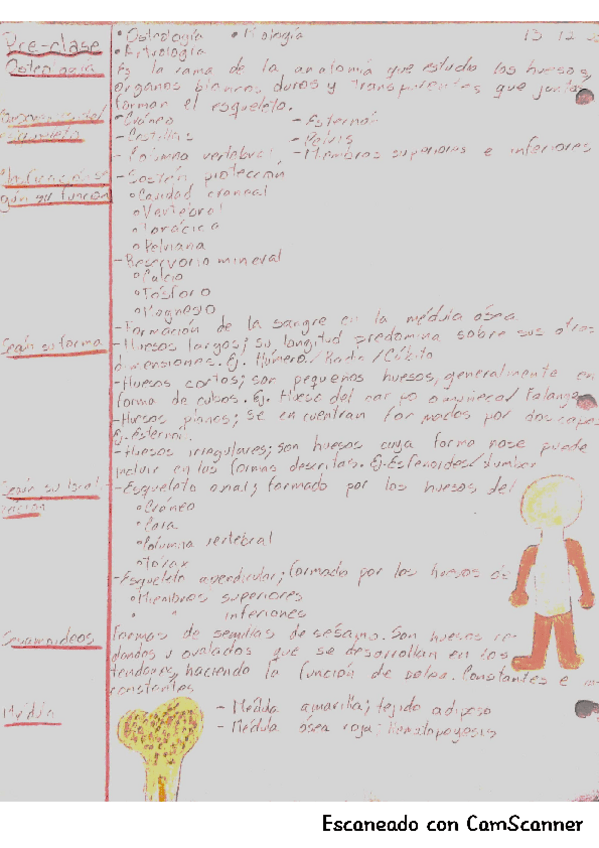 Pre-clase
• Osteología • Miología 13 12
• Artrología
Osteología Es la rama de la anatomía que estudia los huesos,
órganos blancos, duros y transparentes que juntos
forman el esqueleto.
- Cráneo - Esternón
- Costillas - Pelvis
- Columna vertebral - Miembros superiores e inferiores
Clasificación se- - Sostén protección
gún su función • Cavidad craneal
• Vertebral
• Torácica
• Pelviana
- Reservorio mineral
• Calcio
• Fósforo
• Magnesio
- Formación de la sangre en la médula ósea
Según su forma - Huesos largos; su longitud predomina sobre sus otras
dimensiones. Ej. Húmero/Radio/Cúbito
- Huesos cortos; son pequeños huesos, generalmente en
forma de cubos. Ej. Hueso del carpo o muñeca/Falange
- Huesos planos; se encuentran formados por dos capas
Ej. Esternón.
- Huesos irregulares; son huesos cuya forma no se puede
incluir en las formas descritas. Ej. Esfenoides/
Según su locali- - Esqueleto axial; formado por los huesos del
zación • Cráneo
• Cara
• Columna vertebral
• Tórax
- Esqueleto apendicular; formado por los huesos de
• Miembros superiores
• " inferiores
Sesamoideos formas de semillas de sésamo. Son huesos re-
dondos u ovalados que se desarrollan en los
tendones, haciendo la función de polea. Constantes e in-
constantes
Médula - Médula amarilla; tejido adiposo
- Médula ósea roja; Hematopoyesis
Escaneado con CamScanner